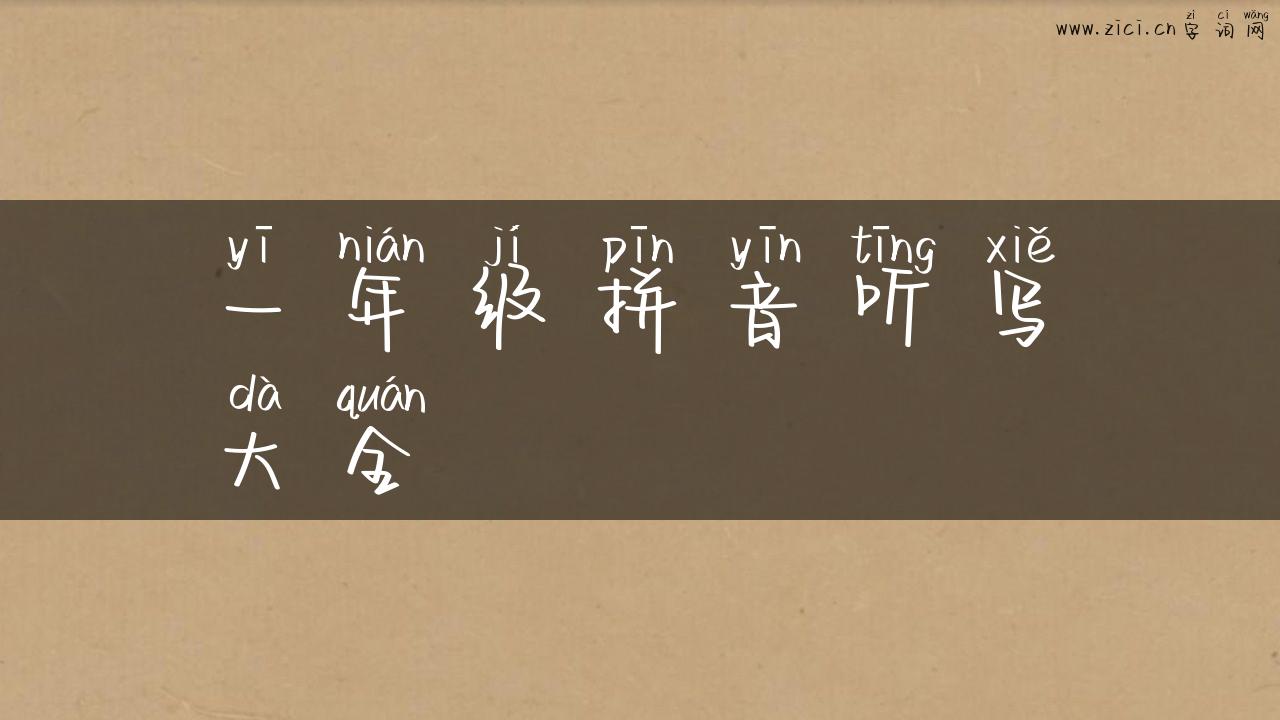 zì cí wǎng
www.zici.cn 字 词 网
yī nián jí pīn yīn tīng xiě
一 年 级 拼 音 听 写
dà quán
大 全